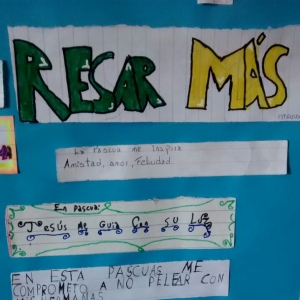 RESAR MÁS
La Pascua me inspira
Amistad, amor, Felicidad.
En Pascua:
Jesús Me Guia Con SU Luz
EN ESTA PASCUAS ME
COMPROMETO A NO PELEAR CON